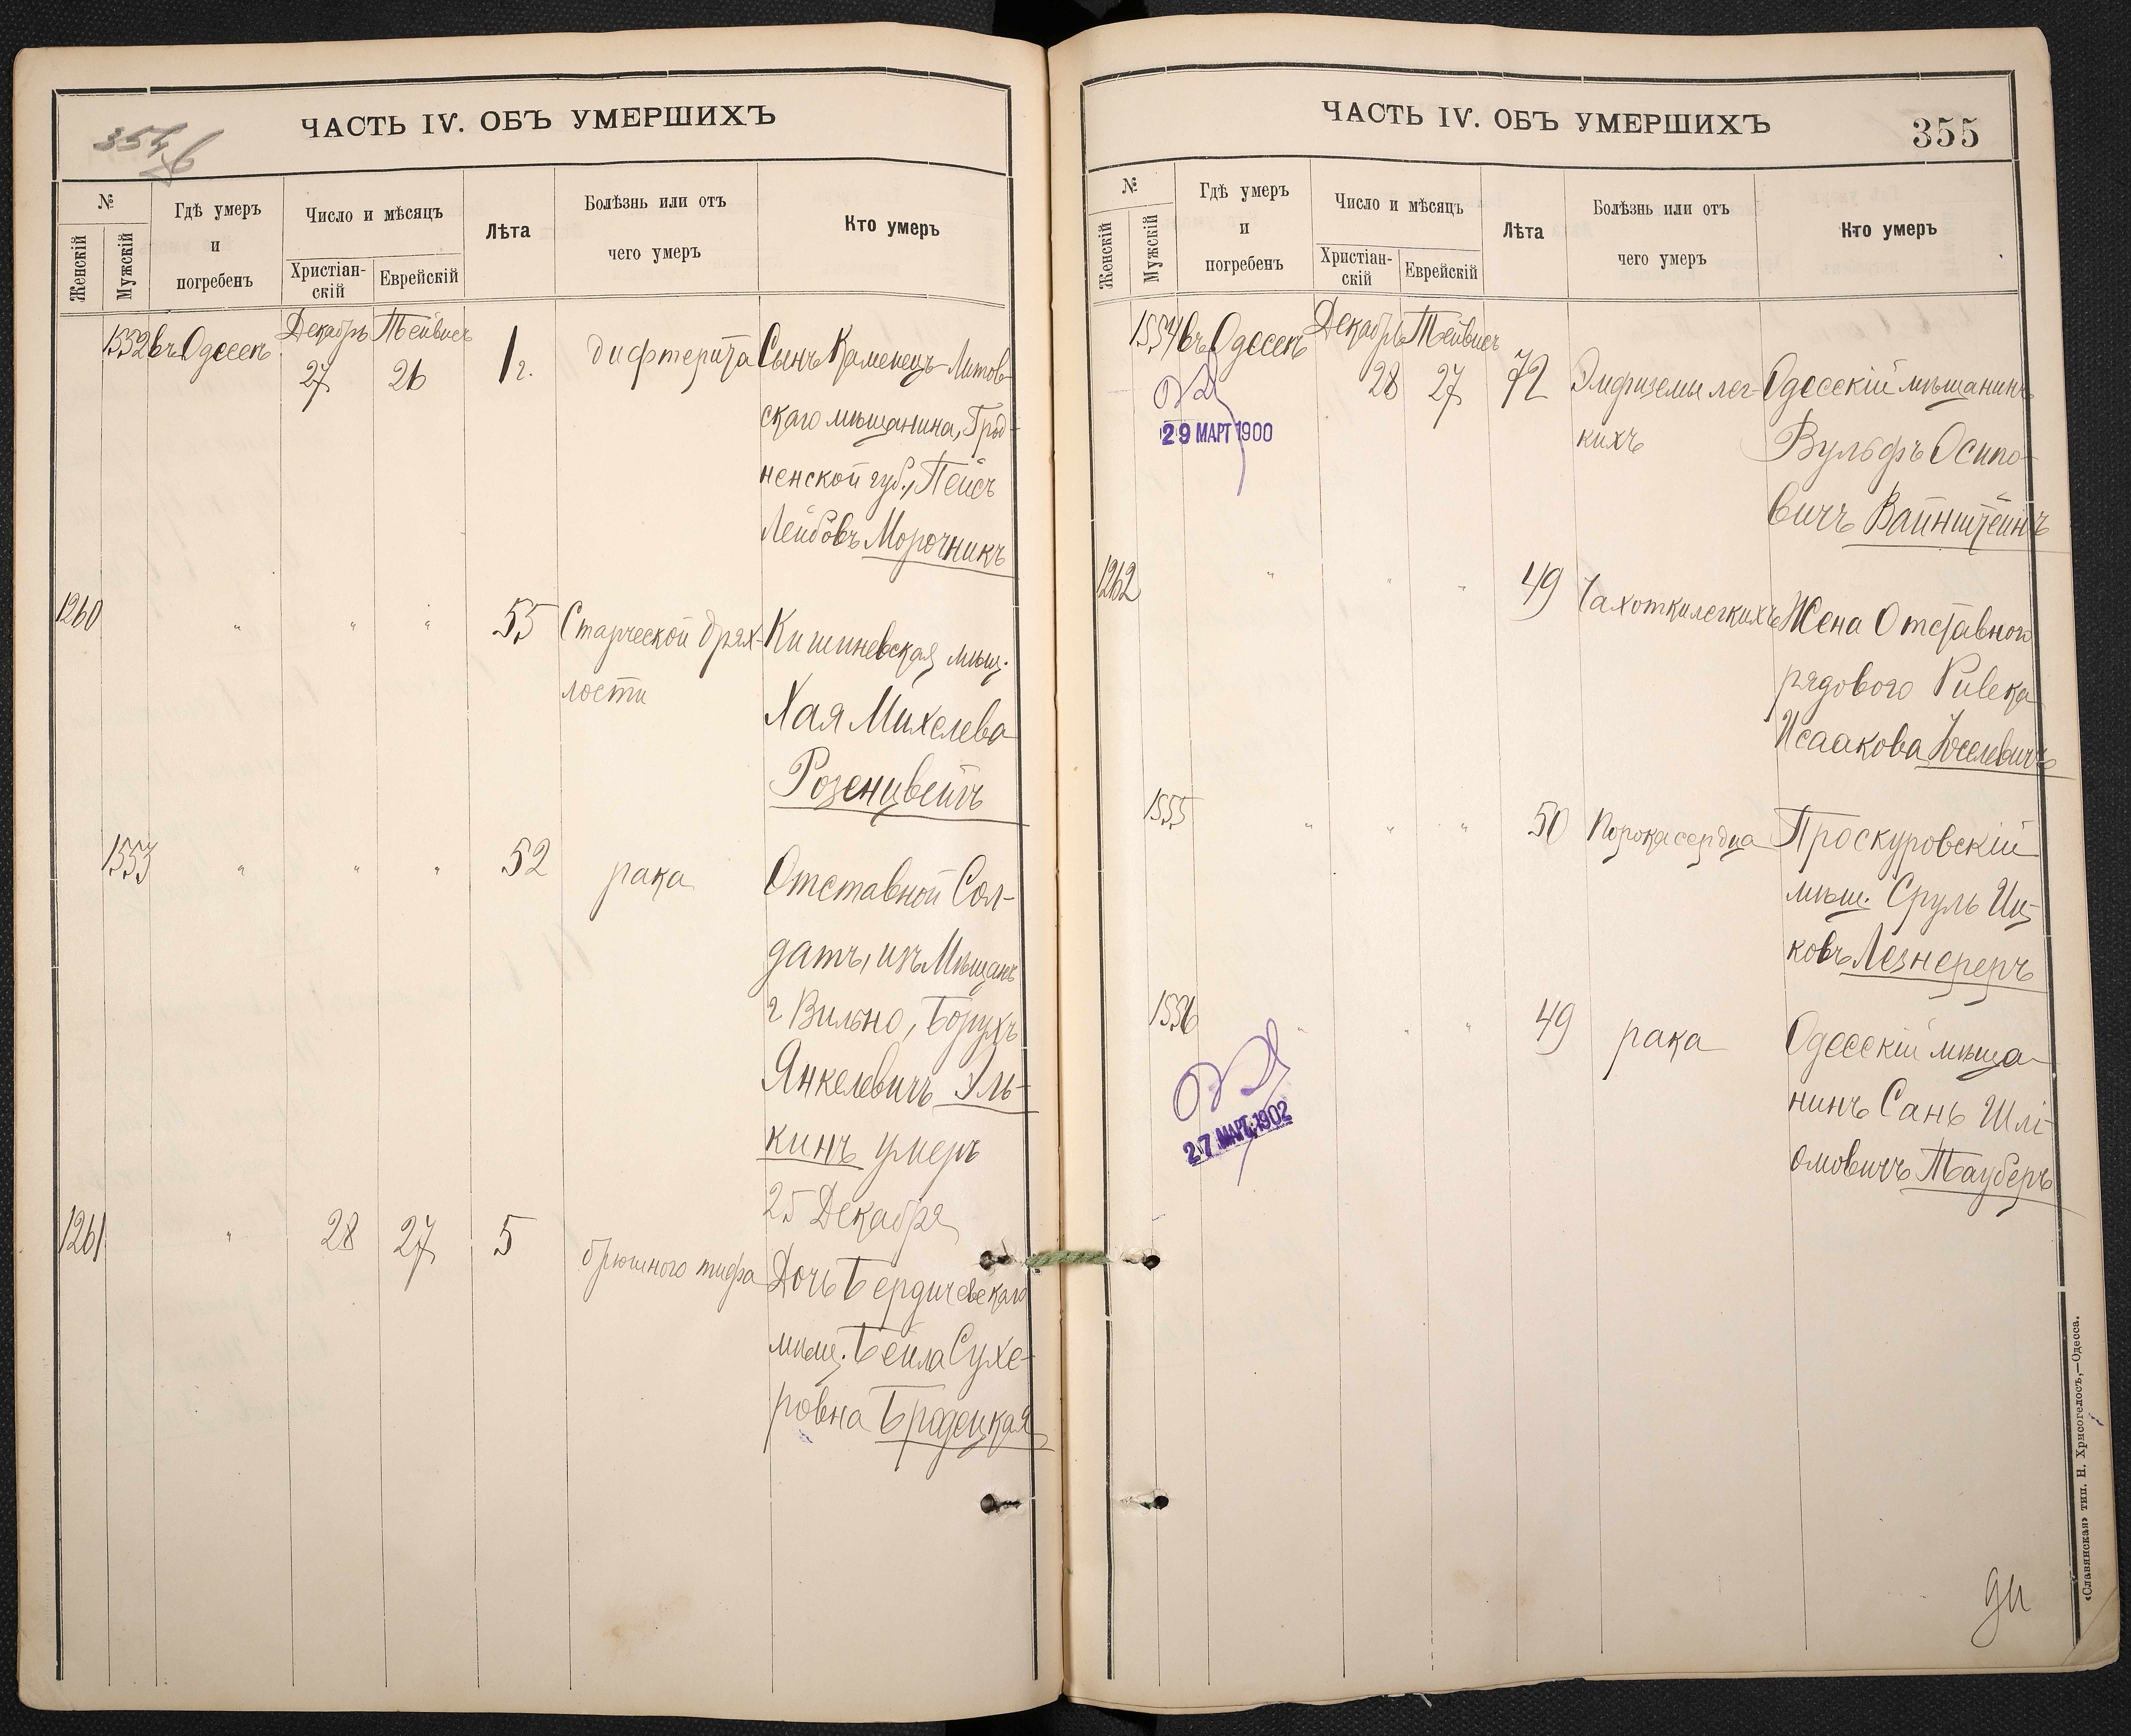 354
ЧАСТЬ IV. ОБЪ УМЕРШИХЪ
№
Женскій
Мужскій
Гдѣ умеръ
и
погребенъ
Число и мѣсяцъ
Христіан-
скій
Еврейскій
Лѣта
Болѣзнь или отъ
чего умеръ
Кто умеръ
1552 въ Одессѣ Декабрь 27 Тейвисъ 26 1 г. дифтерита Сынъ Каменецъ-Литов-
скаго мѣщанина, Грод-
ненской губ., Пейсъ
Лейбовъ Морочникъ
1260 " " " 55 Старческой дрях- Кишиневская мѣщ.
лости Хая Михелева
Розенцвейгъ
1553 " " " 52 рака Отставной Сол-
датъ, изъ Мѣщанъ
г Вильно, Борухъ
Янкелевичъ Эль-
кинъ умеръ
25 Декабря
1261 " 28 27 5 брюшного тифа Дочь Бердичевскаго
мѣщ. Бейла Сухе-
ровна Бродецкая
ЧАСТЬ IV. ОБЪ УМЕРШИХЪ
355
№
Женскій
Мужскій
Гдѣ умеръ
и
погребенъ
Число и мѣсяцъ
Христіан-
скій
Еврейскій
Лѣта
Болѣзнь или отъ
чего умеръ
Кто умеръ
1554 въ Одессѣ Декабрь 28 Тейвисъ 27 72 Эмфиземы лег- Одесскій мѣщанинъ
кихъ Вульфъ Осипо-
вичъ Вайнштейнъ
29 МАРТ 1900
1262 " " " 49 Чахотки легкихъ Жена Отставного
рядового Ривека
Исаакова Іоселевичъ
1555 " " " 50 Порока сердца Проскуровскій
мѣщ. Сруль Иц-
ковъ Лезнереръ
1556 " " " 49 рака Одесскій мѣща-
нинъ Сань Шлі-
омовичъ Тауберъ
27 МАРТ. 1902
«Славянская» тип. Н. Хрисогелосъ,—Одесса.